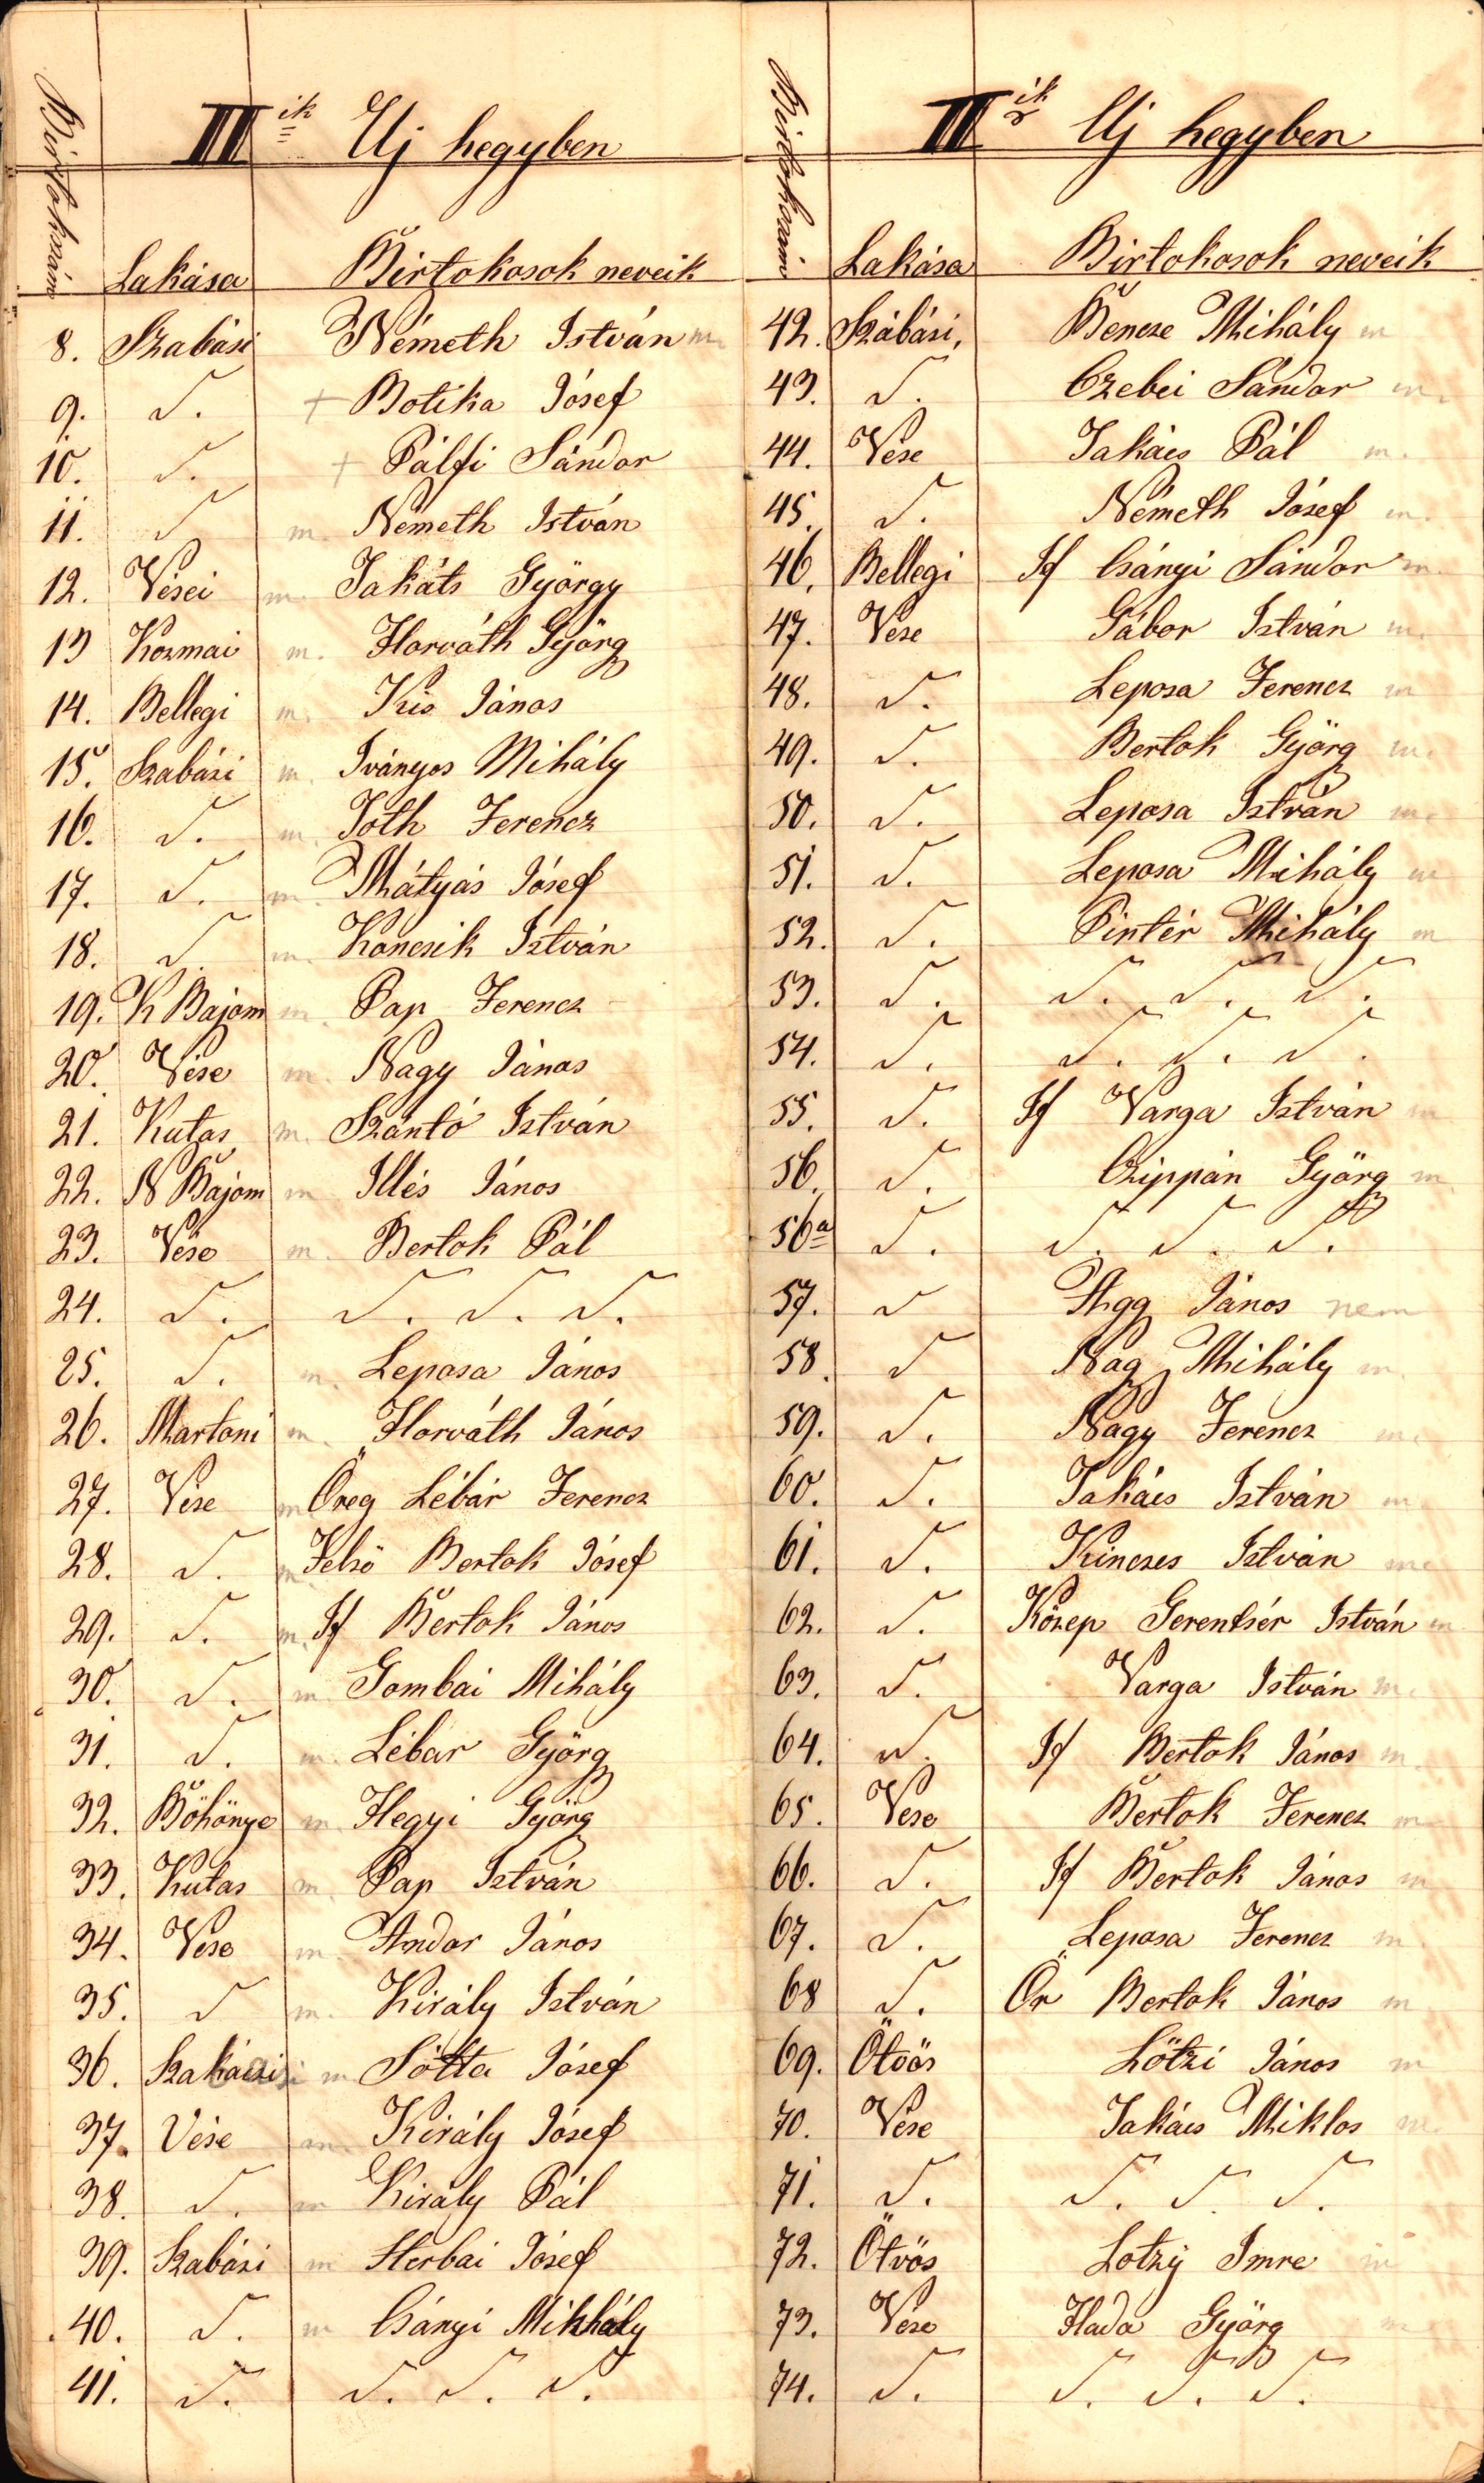 Birtokszám
II ik Uj hegyben
Lakása Birtokosok neveik
8. Szabási Németh István m.
9. S. + Botika Jósef
10. S. + Pálfi Sándor
11. S m. Németh István
12. Vései m. Takáts György
13 Kozmai m. Horváth Györg
14. Bellegi m. Kis János
15. Szabási m. Iványos Mihály
16. S. m. Toth Ferencz
17. S. m. Mátyás Jósef
18. S. m. Koncsik István
19. K Bajom m. Pap Ferencz
20. Vése m. Nagy János
21. Kutas m. Szántó István
22. N Bajom m Illés János
23. Vése m. Bertok Pál
24. S. S. S. S.
25. S. m. Leposa János
26. Martoni m. Horváth János
27. Vése m Öreg Lébár Ferencz
28. S. m. Felső Bertok Jósef
29. S. m. If Bertok János
30. S. m Gombai Mihály
31. S. m. Lébár Györg
32. Böhönye m. Hegyi Györg
33. Kutas m. Pap István
34. Vese m. Andor János
35. S m. Király István
36. m Sótta Jósef
37. Vése m. Király Jósef
38. S. m Király Pál
39. Szabási m Herbai Jósef
40. S. m Csányi Mihhály
41. S. S. S. S.
Birtokszám
II ik Uj hegyben
Lakása Birtokosok neveik
42. Szábási, Bencze Mihály m
43. S. Czebei Sándor m.
44. Vése Takács Pál m.
45. S. Németh Jósef m.
46. Bellegi If Csányi Sándor m.
47. Vése Gábor István m.
48. S. Leposa Ferencz m
49. S. Bertok Györg m.
50. S. Leposa István m.
51. S. Leposa Mihály m
52. S. Pintér Mihály m
53. S. S. S. S.
54. S. S. S. S.
55. S. If Varga István m
56. S. Czippán Györg m.
56a S. S. S. S.
57. S Agg János nem
58. S Nag Mihály m.
59. S. Nagy Ferencz m.
60. S. Takács István m
61. S. Kincses István m
62. S. Közep Gerentsér István m
63. S. Varga István m.
64. S. If Bertok János m.
65. Vese Bertok Ferencz m
66. S. If Bertok János m
67. S. Leposa Ferencz m
68 S. Ör Bertok János m
69. Ötvös Lötzi János m
70. Vése Takács Miklos m.
71. S. S. S. S.
72. Ötvös Lotzÿ Imre m
73. Vese Hada Györg m
74. S. S. S. S.